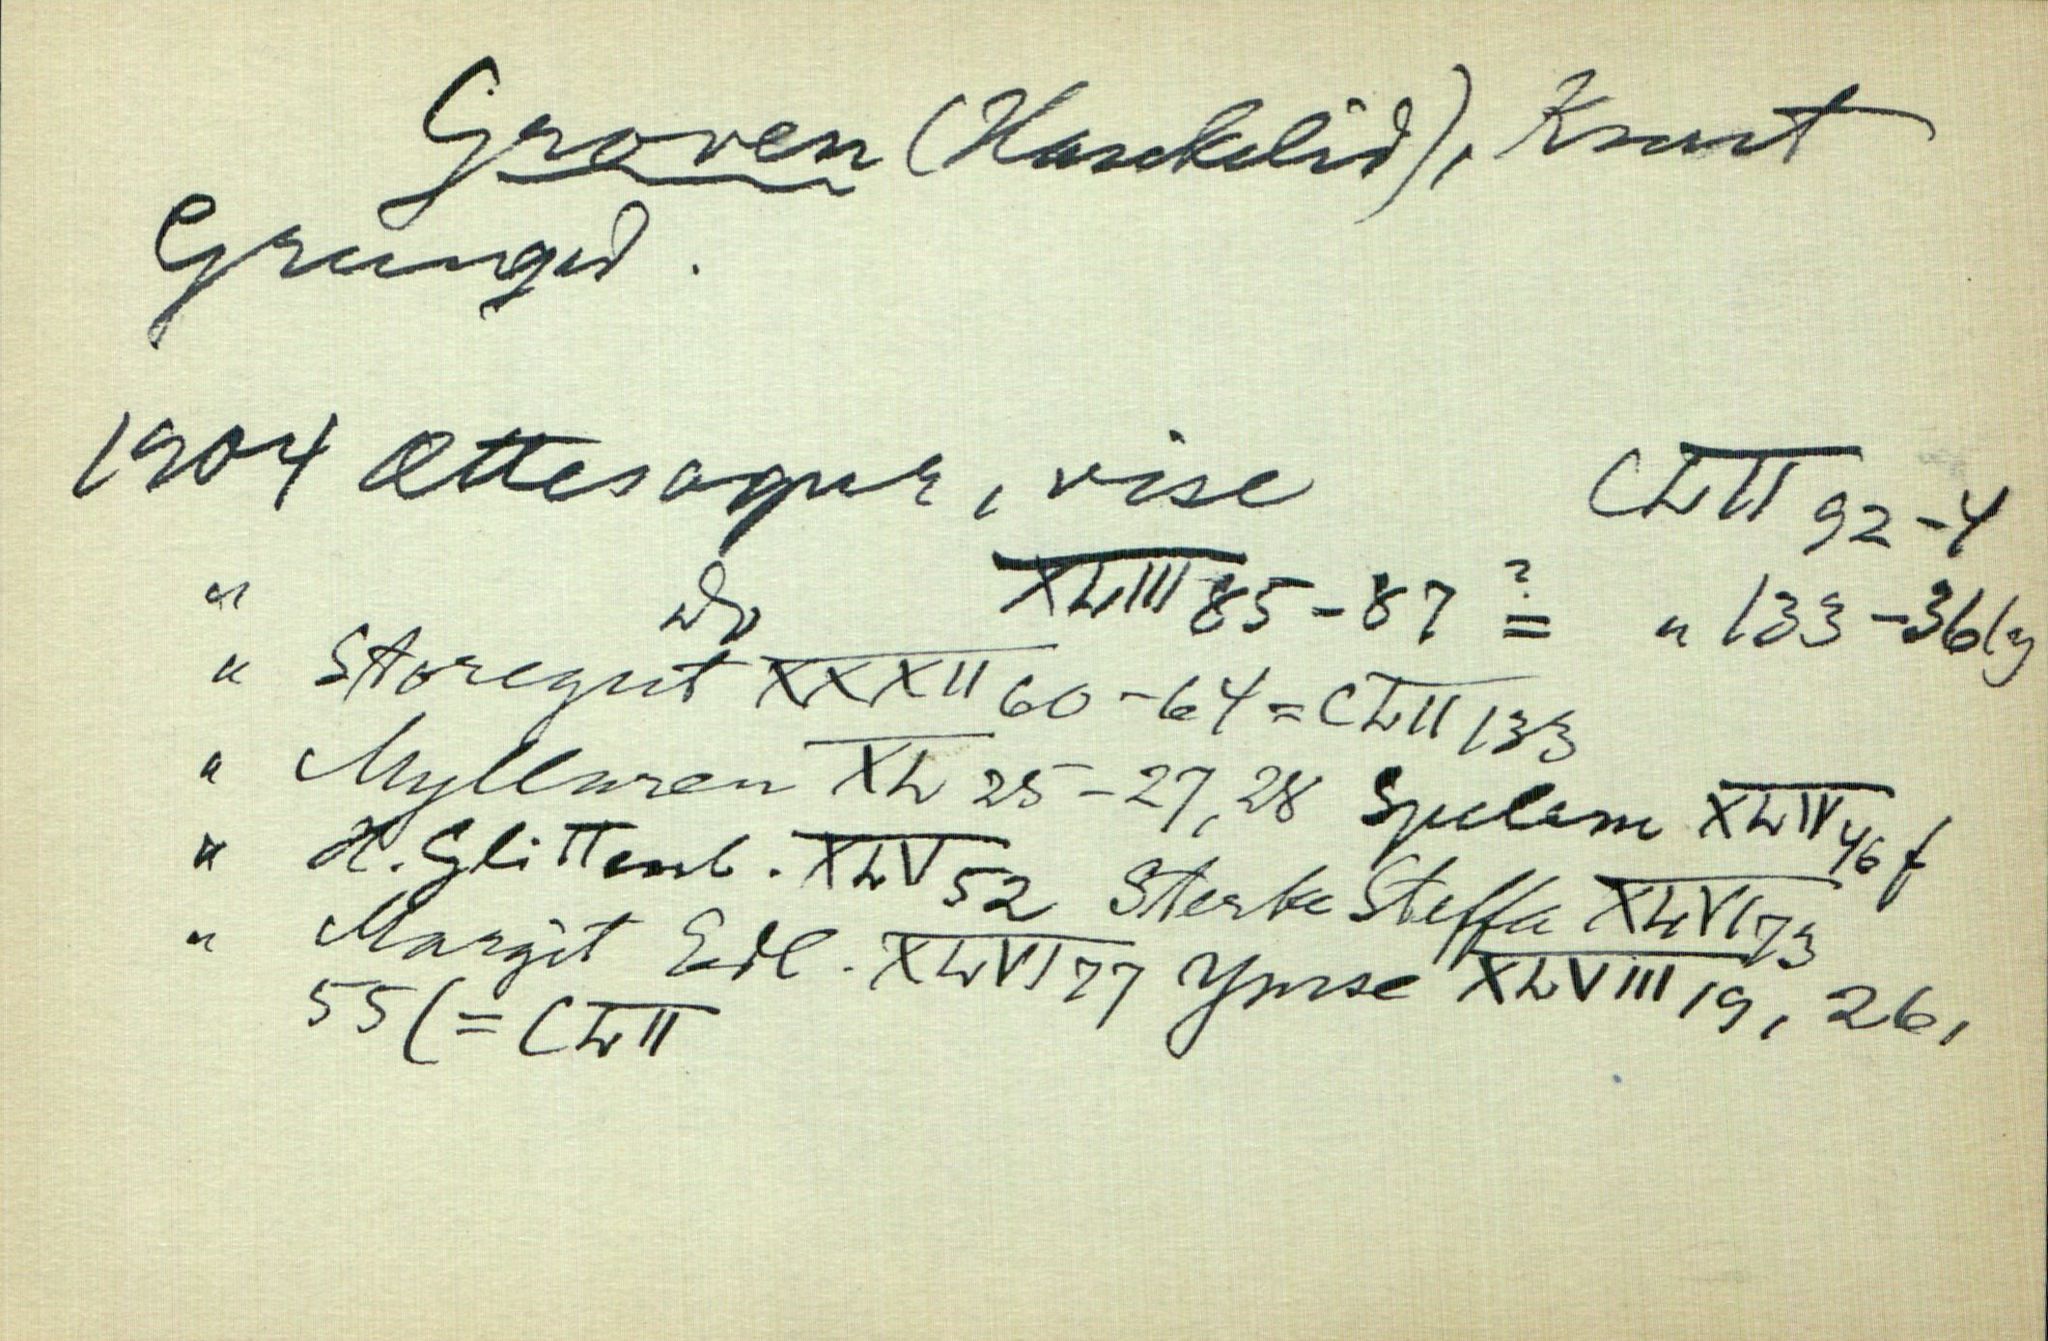 Groven (Haukelid), Knut
Grunged.
1904 Ættesogur, vise CLII 92-4
" do XLIII 85-87 ?= " 133-36 (y
" Storegut XXXII 60-64 = CLII 133
" Myllaren XL 25-27, 28 Spelem XLIV 46 f
" H. Glittenb. XLV 52 Sterke Steffa XLVI 73
" Margit Edl. XLVI 77 Ymse XLVIII 19, 26,
55 (= CLII